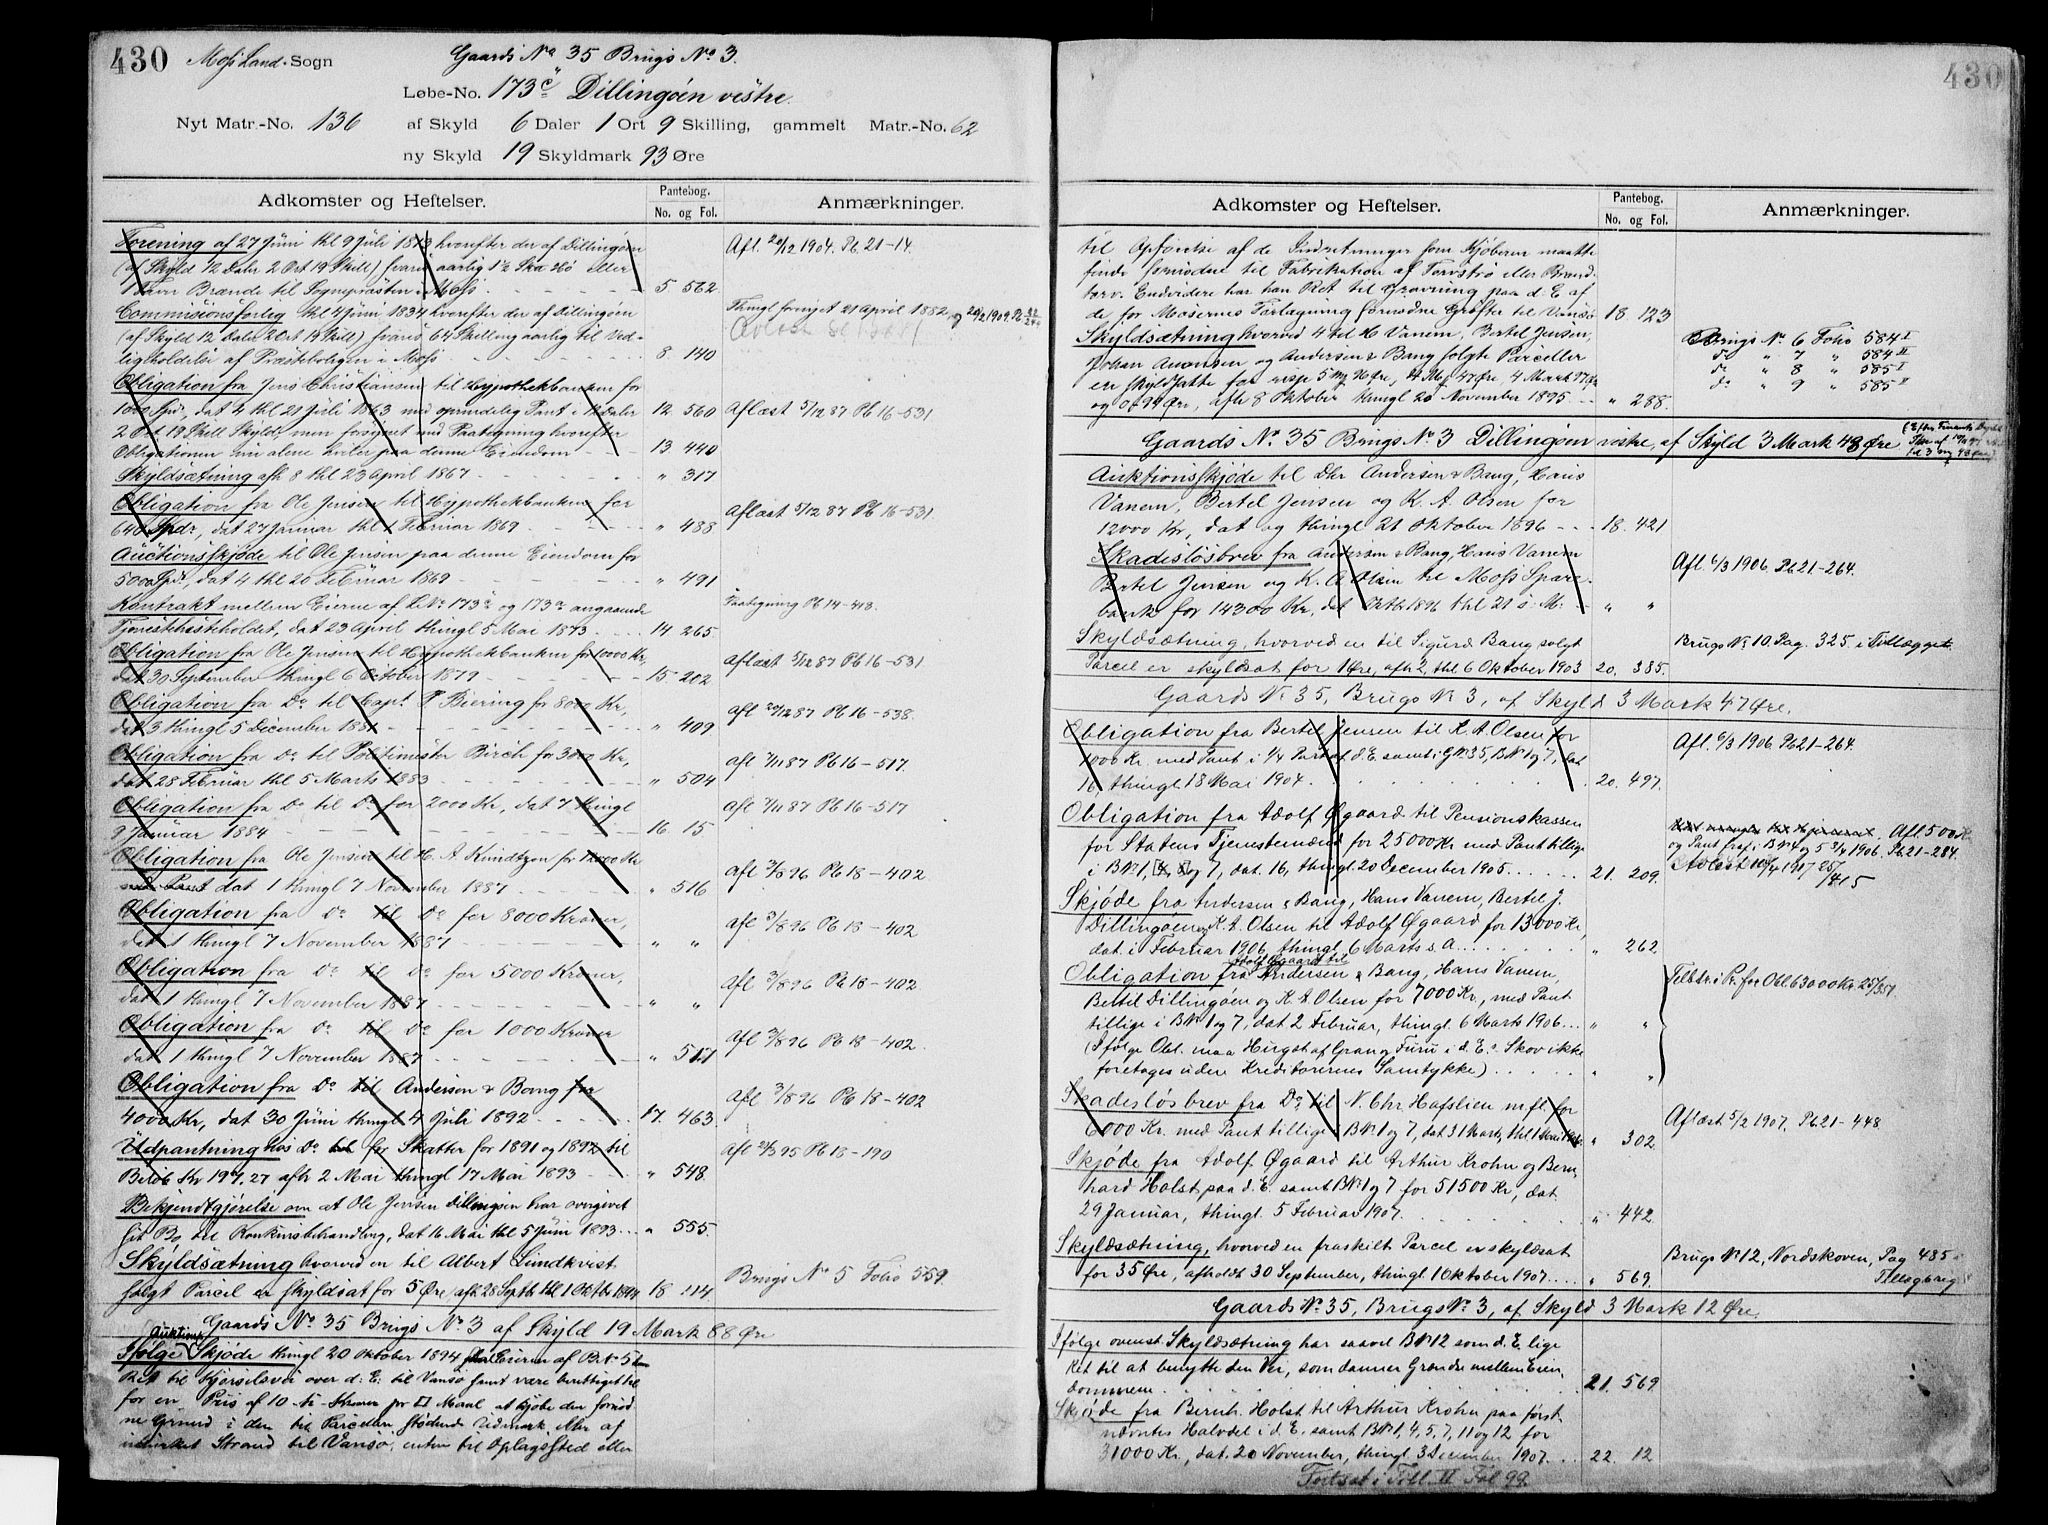 430
Moss Land. Sogn
Gaards No 35 Brugs No 3.
Løbe-No. 173 c" Dillingöen vestre.
Nyt Matr.-No. 136 af Skyld 6 Daler 1 Ort 9 Skilling, gammelt Matr.-No. 62
ny Skyld 19 Skyldmark 93 Øre
Adkomster og Heftelser. Pantebog. No. og Fol. Anmærkninger.
Forening af 27 Juni thl 9 Juli 1813 hvorefter der af Dillingöen Afl. 20/12 1904. Pb. 21-14.
(af Skyld 12 Daler 2 Ort 19 Skill) svares aarlig 1½ Hø eller
1 Favn Brænde til Sogneprästen i Moss 5 562
Commisionsforlig thl 4 Juni 1834 hvorefter der af Dillingöen Thingl fornyet 21 April 1882
(af Skyld 12 Daler 2 Ort 19 Skill) svares 64 Skilling aarlig til Ved-
ligeholdelse af Præsteboligen i Moss 8 140
Obligation fra Jens Christiansen til Hypothekbanken for
1000 Spd, dat 4 thl 21 Juli 1863 med oprindelig Pant i 12 Daler 12 560 Aflæst 5/12 87 Pb 16-531
2 Ort 19 Skill Skyld, men forsynet med Paategning hvorefter
Obligationen nu alene hviler paa denne Eiendom 13 440
Skyldsætning afh 8 thl 23 April 1867 " 317
Obligation fra Ole Jensen til Hypothekbanken for Aflæst 5/12 87 Pb 16-531
640 Spdr, dat 27 Januar thl 1 Februar 1869 " 488
Auctionsskjøde til Ole Jensen paa denne Eiendom for
5000 Spd, dat 4 thl 20 Februar 1869 " 491
Kontrakt mellem Eierne af LNo 173 a og 173 c angaaende Paategning Pb 14-413.
Tjenestehesteholdet, dat 23 April thingl 5 Mai 1873 14 265
Obligation fra Ole Jensen til Hypothekbanken for 1000 Kr, Aflæst 5/12 87 Pb 16-531
dat 30 September thingl 6 October 1879 15 202
Obligation fra Do til Capt. P. Biering for 8000 Kr, Afl 20/12 87 Pb 16-538.
dat 3 thingl 5 December 1881 " 409
Obligation fra Do til Politimester Birch for 3000 Kr, Afl 7/11 87 Pb 16-517.
dat 28 Februar thl 5 Marts 1883 " 504
Obligation fra Do til Do for 2000 Kr, dat 7 thingl Afl 7/11 87 Pb 16-517
9 Januar 1884 16 15
Obligation fra Ole Jensen til H. A. Kundtzon for 12000 Kr Afl 3/8 96 Pb 18-402
med Pant dat 1 thingl 7 November 1887 " 516
Obligation fra Do til Do for 8000 Kroner, Afl 3/8 96 Pb 18-402
dat 1 thingl 7 November 1887 " "
Obligation fra Do til Do for 5000 Kroner, Afl 3/8 96 Pb 18-402
dat 1 thingl 7 November 1887 " "
Obligation fra Do til Do for 1000 Kroner Afl 3/8 96 Pb 18-402
dat 1 thingl 7 November 1887 " 517
Obligation fra Do til Andersen & Bang for Afl 3/8 96 Pb 18-402
4000 Kr, dat 30 Juni thingl 4 Juli 1892 17. 463
Udpantning hos Do for Skatter for 1891 og 1892 til Afl 21/3 95 Pb 18-190
Beløb Kr 197,27 afh 2 Mai thingl 17 Mai 1893 " 548
Bekjendtgjørelse om at Ole Jensen Dillingöen har overgivet
sit Bo til Konkursbehandling, dat 16 Mai thl 5 Juni 1893 " 555
Skyldsætning hvorved en til Albert Lundkvist
solgt Parcel er skyldsat for 5 Øre, afh 28 Septb thl 1 Oktbr 1894 18 114 Brugs No 5 Folio 559.
Gaards No 35 Brugs No 3 af Skyld 19 Mark 88 Øre
Ifølge Auktions Skjøde thingl 20 Oktober 1894 skal Eieren af B.No 5
Ret til Kjørselsvei over d: E: til Vansø samt være berettiget til
for en Pris af 10 - ti - Kroner pr □ Maal at kjøbe den fornød-
ne Grund i den til Parcelen stødende Udmark eller af
Strand til Vansø, enten til Oplagssted eller
430
Adkomster og Heftelser. Pantebog. No. og Fol. Anmærkninger.
til Opførelse af de Indretninger som Kjøberen maatte
finde fornødne til Fabrikation af Torvstrø eller Brænd-
torv. Endvidere har han Ret til Gravning paa d. E af
de for Mosernes Tørlægning fornødne Grøfter til Vansø 18 123
Skyldsætning hvorved 4 til H Vanem, Bertel Jensen, Brugs No 6 Folio 584 I
Johan Amonsen og Andersen & Bang solgte Parceller do " 7 " 584 II
do " 8 " 585 I
do " 9 " 585 II
og 0 f 94 Øre, afh 8 Oktober thingl 20 November 1895 " 288.
Gaards No 35 Brugs No 3 Dillingöen vestre, af Skyld 3 Mark 48 Øre
Auktionsskjøde til Dhr Andersen & Bang, Hans
Vanem, Bertel Jensen og K. A. Olsen for
12000 Kr, dat og thingl 21 Oktober 1896 18. 421
Skadesløsbrev fra Andersen & Bang, Hans Vanem Afl. 6/3 1906. Pb. 21-264.
Bertel Jensen og K. A Olsen til Moss Spare-
bank for 14300 Kr, dat Oktbr 1896 thl 21 s. M: " "
Skyldsætning, hvorved en til Sigurd Bang solgt Brugs No 10. Pag. 325. i Tillægget.
Parcel er skyldsat for 1 Øre, afh. 2, thl. 6 Oktober 1903 20. 385.
Gaards No 35, Brugs No 3, af Skyld 3 Mark 47 Øre.
Obligation fra Bertel Jensen til K. A. Olsen for Afl. 6/3 1906. Pb. 21-264.
1000 Kr. med Pant i 1/4 Part af d. E. samt i GNo 35, BNo 1 og 7, dat
16, thingl. 18 Mai 1904. 20. 497.
Obligation fra Adolf Øgaard til Pensionskassen
for Statens Tjenestemænd for 25000 Kr med Pant tillige Afl. 500 Kr
i BNo 1, [4, 5] og 7, dat. 16, thingl. 20 December 1905. 21. 209. og Pant fraf. i BNo 4 og 5 3/4 1906. Pb. 21-284.
Skjøde fra Andersen & Bang, Hans Vanem, Bertel J.
Dillingöen og K. A. Olsen til Adolf Øgaard for 13000 Kr,
dat. i Februar 1906, thingl. 6 Marts s. A. " 262.
Obligation fra Adolf Øgaard til Andersen & Bang, Hans Vanem,
Bertel Dillingöen og K. A. Olsen for 7000 Kr, med Pant
tillige i BNo 1 og 7, dat. 2 Februar, thingl. 6 Marts 1906. " "
(Ifølge Obl. maa Hugst af Gran og Furu i d. E.s Skov ikke
foretages uden Kreditorernes Samtykke) " "
Skadesløsbrev fra Do til N. Chr. Hafslien m.fl. for Aflæst 5/2 1907, Pb. 21-448.
6000 Kr. med Pant tillige i BNo 1 og 7, dat 31 Marts, thl. 1 Mai 1906 " 302.
Skjøde fra Adolf Øgaard til Arthur Krohn og Bern-
hard Holst paa d. E. samt BNo 1 og 7 for 51500 Kr, dat.
29 Januar, thingl. 5 Februar 1907. " 442.
Skyldsætning, hvorved en fraskilt Parcel er skyldsat Brugs No 12, Nordskoven, Pag 485
for 35 Øre, afholdt 30 September, thingl. 1 Oktober 1907 " 569.
Gaards No 35, Brugs No 3, af Skyld 3 Mark 12 Øre.
Ifølge ovenst. Skyldsætning har saavel BNo 12 som d. E. lige
Ret til at benytte den Vei, som danner Grændse mellem Eien-
dommene. 21. 569
Skjøde fra Bernh. Holst til Arthur Krohn paa først-
nævntes Halvdel i d. E, samt BNo 1, 4, 5, 7, 11 og 12 for
31000 Kr., dat. 20 November, thingl. 3 December 1907. 22. 12
Fortsat i Till. II Fol 99.